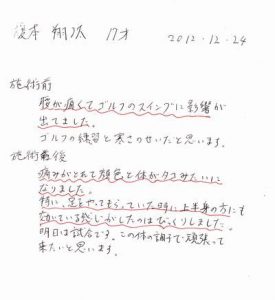 榎本 翔次 17才 2012.12.24
施術前
腰が痛くてゴルフのスイングに影響が
出てました。
ゴルフの練習と寒さのせいだと思います。
施術後
痛みがとれて顔色と体がタコみたいに
なりました。
特に、足をやってもらっていた時に上半身の方にも
効いている感じがしたのはびっくりしました。
明日は試合です。この体の調子で頑張って
来たいと思います。